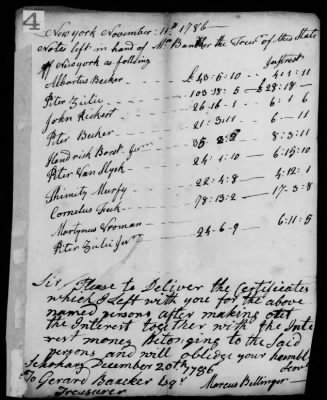 4
New york November 11th 1786
Notes left in hand of Mr Bancker the Treasr of this State
of Newyork as following Intrest
Albartus Becker £40:6:10 — 4:1:11
Piter Zielie 103:18:5 — £28:18—
John Rickert 26:16:1 — 6:1:6
Piter Becker 21:3:11 — 6—11
Hendrick Borst Junr 35 2:2 — 8:3:11
Piter Van Slyck 24:1:10 — 6:15:10
Thimity Murfy 22:4:8 — 4:12:1
Cornelus Feek 78:13:2 — 17:3:8
Martynus Vroman
Piter Zielie Junr 24:6:9 — 6:11:5
Sir, Please to Deliver the Certificates
which I Left with you for the above
named persons after making out
the Interest together with the Inte
rest money Belonging to the Said
persons and will obledge your humble
Schohary December 20th 1786 Servt
To Gerard Bancker Esqr Marcus Bellinger
Treasurer